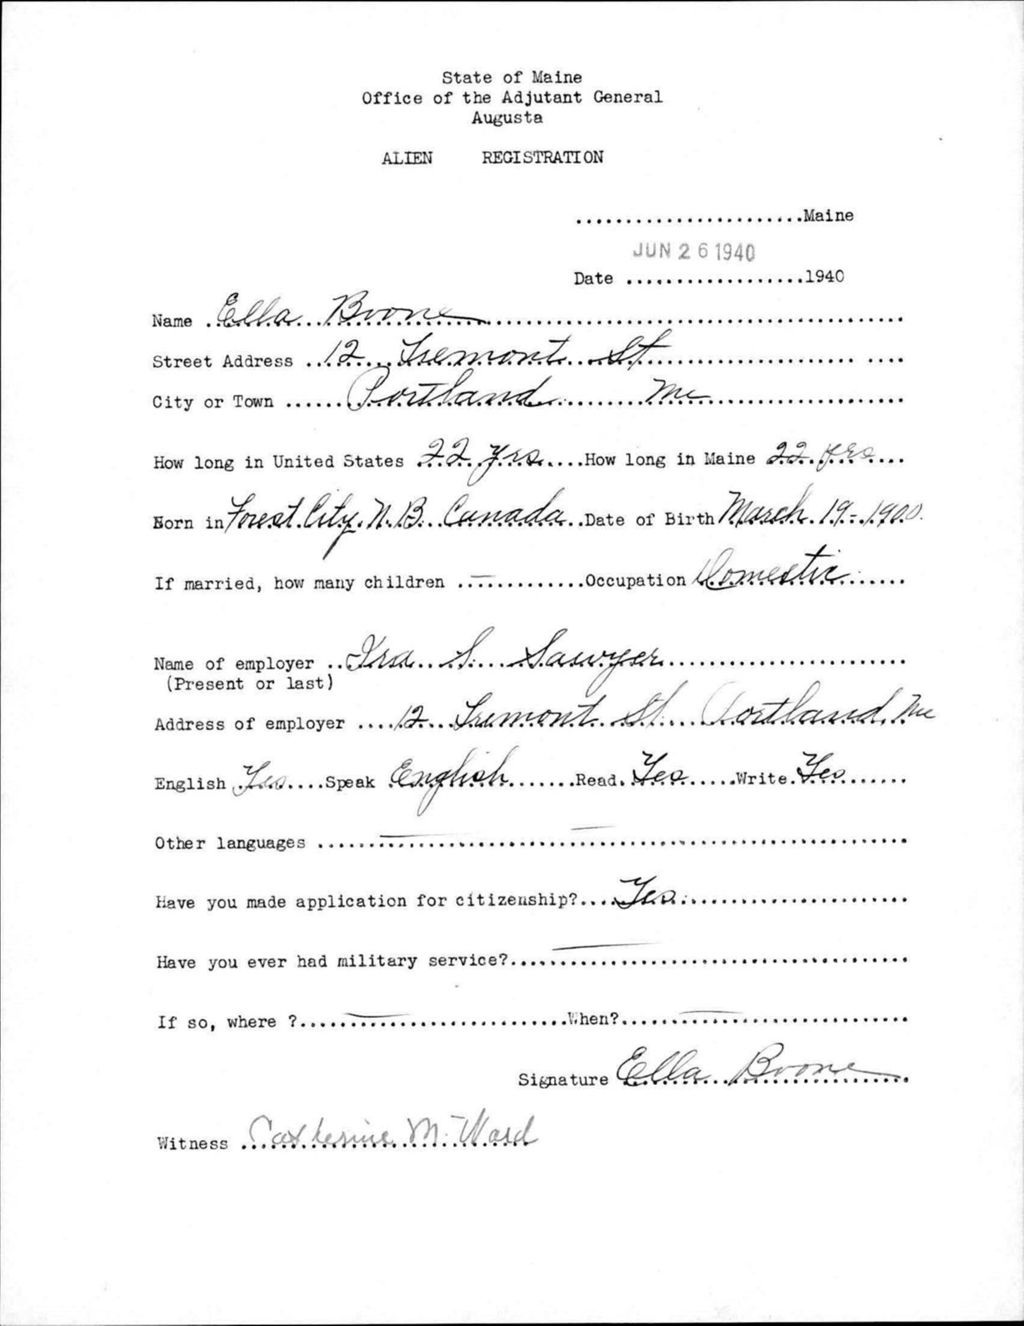 State of Maine
Office of the Adjutant General
Augusta
ALIEN REGISTRATION
.......................Maine
JUN 26 1940
Date ..................1940
Name ..Ella Boone
Street Address ..12 Tremont St
City or Town ......Portland Me
How long in United States 22 yrs....How long in Maine 22 yrs...
Born in Forest City, N.B. Canada..Date of Birth March 19-1900.
If married, how many children ..—..........Occupation Domestic......
Name of employer ..Ira S. Sawyer
(Present or last)
Address of employer ....12 Tremont St. Portland, Me
English Yes....Speak English.......Read.Yes.....Write.Yes......
Other languages ......— —
Have you made application for citizenship?....Yes
Have you ever had military service?....—
If so, where ?.....—...............When?......—
Signature Ella Boone
Witness ...Catherine M. Ward